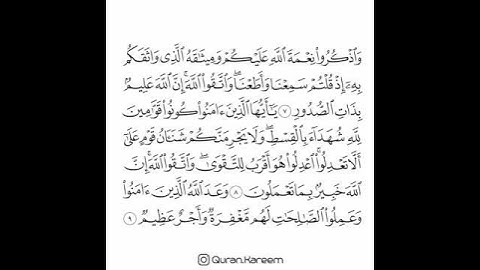 وَٱذْكُرُوا۟ نِعْمَةَ ٱللَّهِ عَلَيْكُمْ وَمِيثَٰقَهُ ٱلَّذِى وَاثَقَكُم
بِهِۦٓ إِذْ قُلْتُمْ سَمِعْنَا وَأَطَعْنَا ۖ وَٱتَّقُوا۟ ٱللَّهَ ۚ إِنَّ ٱللَّهَ عَلِيمٌۢ
بِذَاتِ ٱلصُّدُورِ ٧ يَٰٓأَيُّهَا ٱلَّذِينَ ءَامَنُوا۟ كُونُوا۟ قَوَّٰمِينَ
لِلَّهِ شُهَدَآءَ بِٱلْقِسْطِ ۖ وَلَا يَجْرِمَنَّكُمْ شَنَـَٔانُ قَوْمٍ عَلَىٰٓ
أَلَّا تَعْدِلُوا۟ ۚ ٱعْدِلُوا۟ هُوَ أَقْرَبُ لِلتَّقْوَىٰ ۖ وَٱتَّقُوا۟ ٱللَّهَ ۚ إِنَّ
ٱللَّهَ خَبِيرٌۢ بِمَا تَعْمَلُونَ ٨ وَعَدَ ٱللَّهُ ٱلَّذِينَ ءَامَنُوا۟
وَعَمِلُوا۟ ٱلصَّٰلِحَٰتِ ۙ لَهُم مَّغْفِرَةٌ وَأَجْرٌ عَظِيمٌ ٩
Quran.Kareem